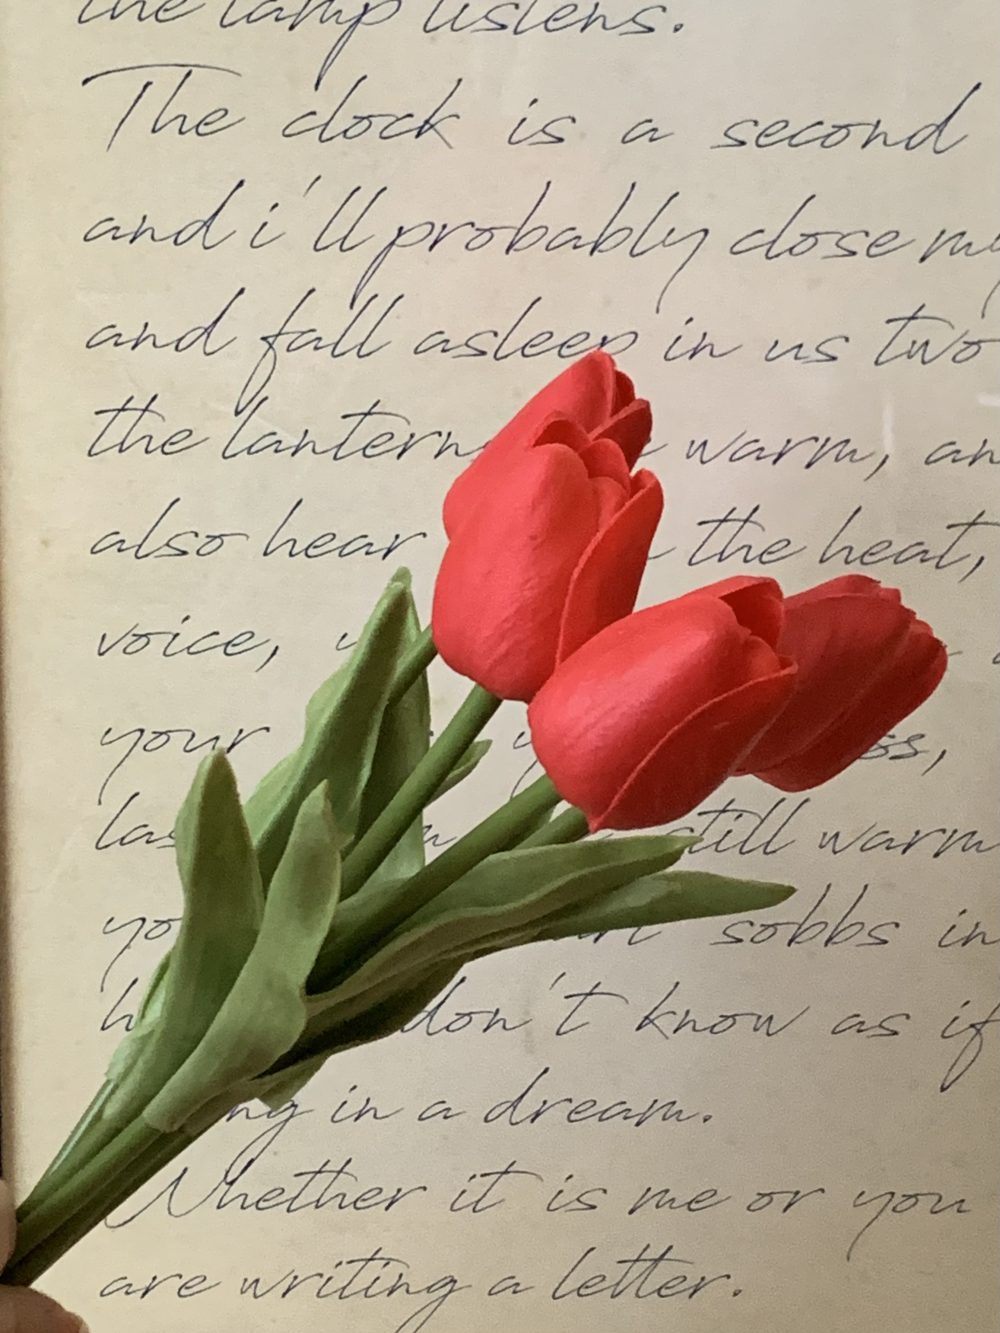 the lamp listens.
The clock is a second
and i'll probably close
and fall asleep in us two
the lantern warm,
also hear the heat,
voice,
your
still warm
sobbs in
don't know as if
in a dream.
Whether it is me or you
are writing a letter.